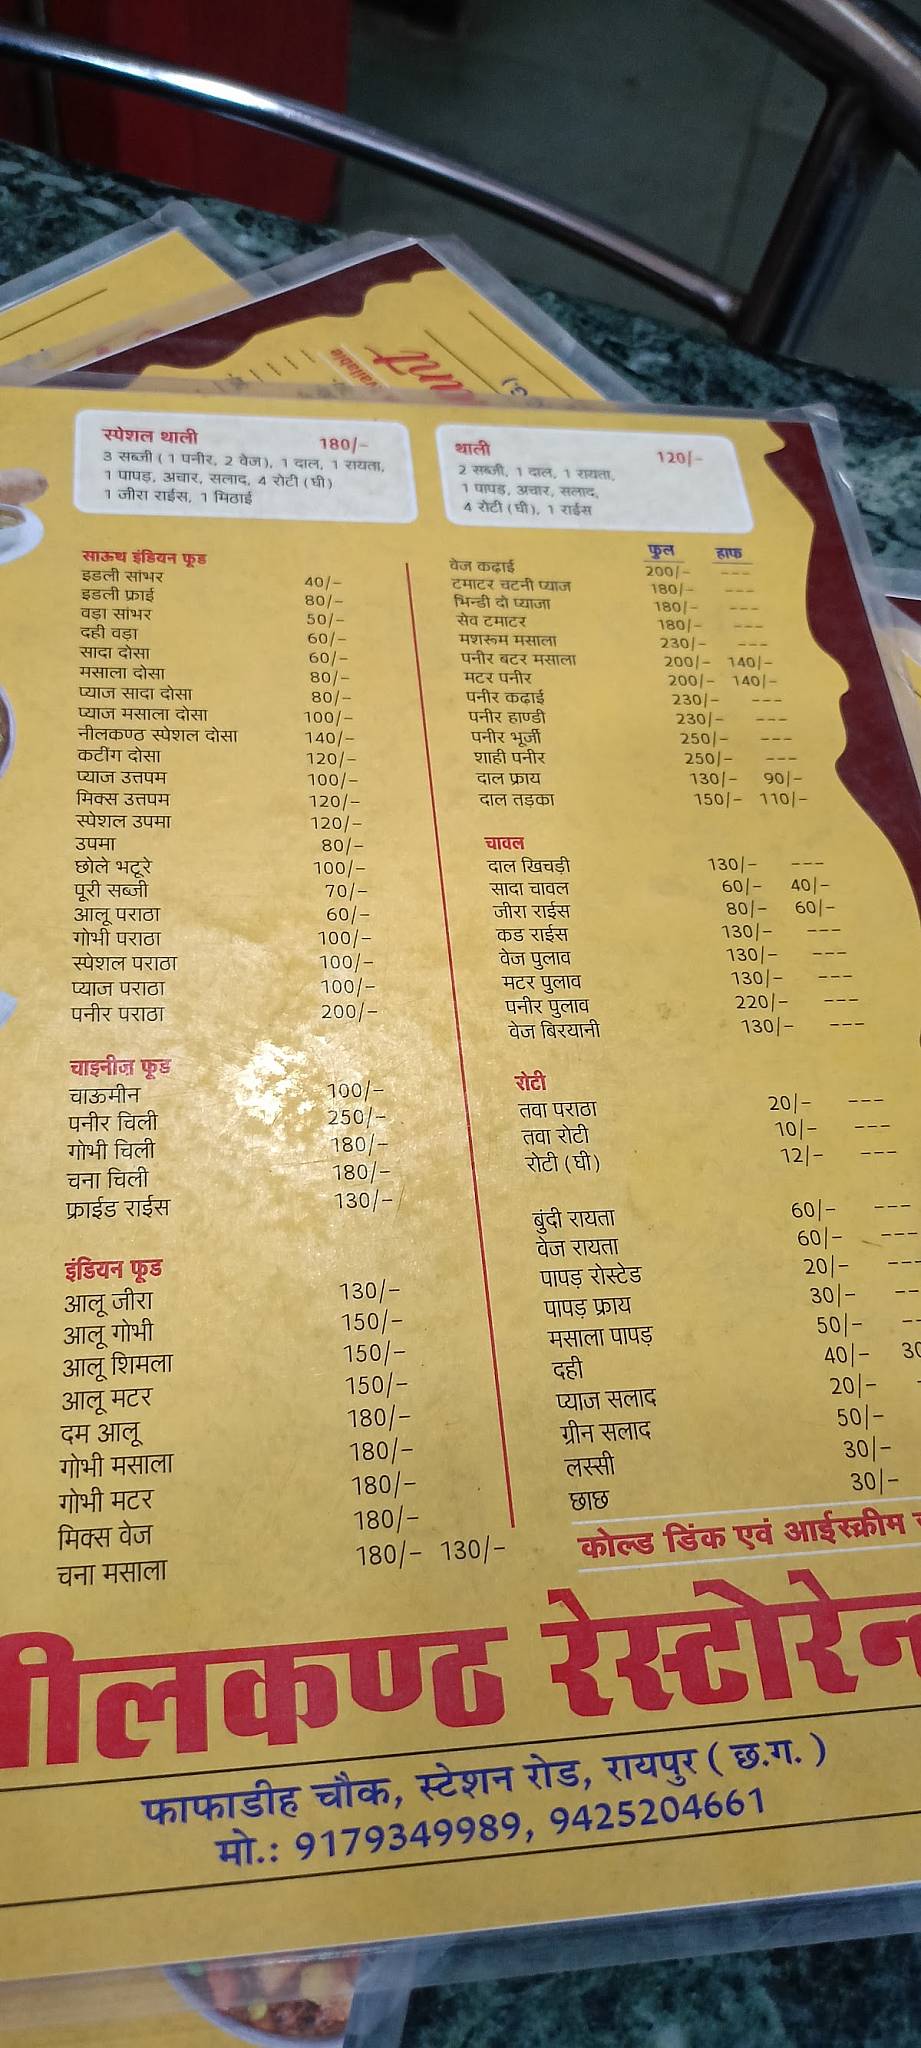 स्पेशल थाली 180/-
3 सब्जी ( 1 पनीर, 2 वेज), 1 दाल, 1 रायता,
1 पापड़, अचार, सलाद, 4 रोटी (घी)
1 जीरा राईस, 1 मिठाई
थाली 120/-
2 सब्जी, 1 दाल, 1 रायता,
1 पापड़, अचार, सलाद,
4 रोटी (घी), 1 राईस
साऊथ इंडियन फूड
इडली सांभर 40/-
इडली फ्राई 80/-
वड़ा सांभर 50/-
दही वड़ा 60/-
सादा दोसा 60/-
मसाला दोसा 80/-
प्याज सादा दोसा 80/-
प्याज मसाला दोसा 100/-
नीलकण्ठ स्पेशल दोसा 140/-
कटींग दोसा 120/-
प्याज उत्तपम 100/-
मिक्स उत्तपम 120/-
स्पेशल उपमा 120/-
उपमा 80/-
छोले भटूरे 100/-
पूरी सब्जी 70/-
आलू पराठा 60/-
गोभी पराठा 100/-
स्पेशल पराठा 100/-
प्याज पराठा 100/-
पनीर पराठा 200/-
चाइनीज़ फूड
चाऊमीन 100/-
पनीर चिली 250/-
गोभी चिली 180/-
चना चिली 180/-
फ्राईड राईस 130/-
इंडियन फूड
आलू जीरा 130/-
आलू गोभी 150/-
आलू शिमला 150/-
आलू मटर 150/-
दम आलू 180/-
गोभी मसाला 180/-
गोभी मटर 180/-
मिक्स वेज 180/-
चना मसाला 180/- 130/-
फुल हाफ
वेज कढ़ाई 200/- ---
टमाटर चटनी प्याज 180/- ---
भिन्डी दो प्याजा 180/- ---
सेव टमाटर 180/- ---
मशरूम मसाला 230/- ---
पनीर बटर मसाला 200/- 140/-
मटर पनीर 200/- 140/-
पनीर कढ़ाई 230/- ---
पनीर हाण्डी 230/- ---
पनीर भूर्जी 250/- ---
शाही पनीर 250/- ---
दाल फ्राय 130/- 90/-
दाल तड़का 150/- 110/-
चावल
दाल खिचड़ी 130/- ---
सादा चावल 60/- 40/-
जीरा राईस 80/- 60/-
कड राईस 130/- ---
वेज पुलाव 130/- ---
मटर पुलाव 130/- ---
पनीर पुलाव 220/- ---
वेज बिरयानी 130/- ---
रोटी
तवा पराठा 20/- ---
तवा रोटी 10/- ---
रोटी (घी) 12/- ---
बुंदी रायता 60/- ---
वेज रायता 60/- ---
पापड़ रोस्टेड 20/- ---
पापड़ फ्राय 30/- --
मसाला पापड़ 50/- --
दही 40/- 30
प्याज सलाद 20/- -
ग्रीन सलाद 50/-
लस्सी 30/-
छाछ 30/-
कोल्ड डिंक एवं आईस्क्रीम
ीलकण्ठ रेस्टोरेन
फाफाडीह चौक, स्टेशन रोड, रायपुर ( छ.ग. )
मो.: 9179349989, 9425204661